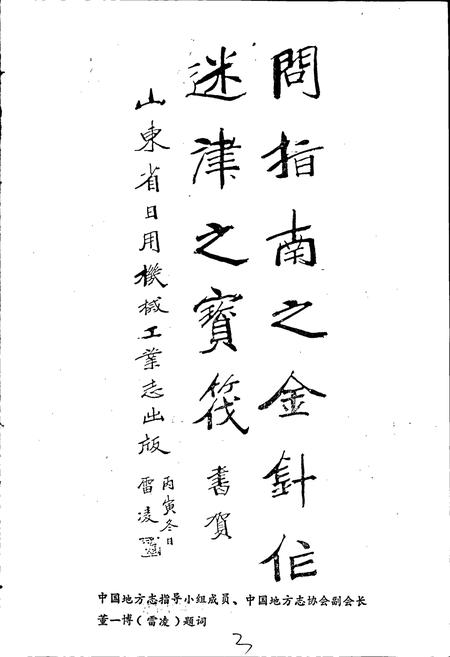 問指南之金針作
迷津之寶筏 書賀
山東省日用機械工業志出版
丙寅冬日
雷凌
中国地方志指导小组成员、中国地方志协会副会长
董一博(雷凌)题词
3